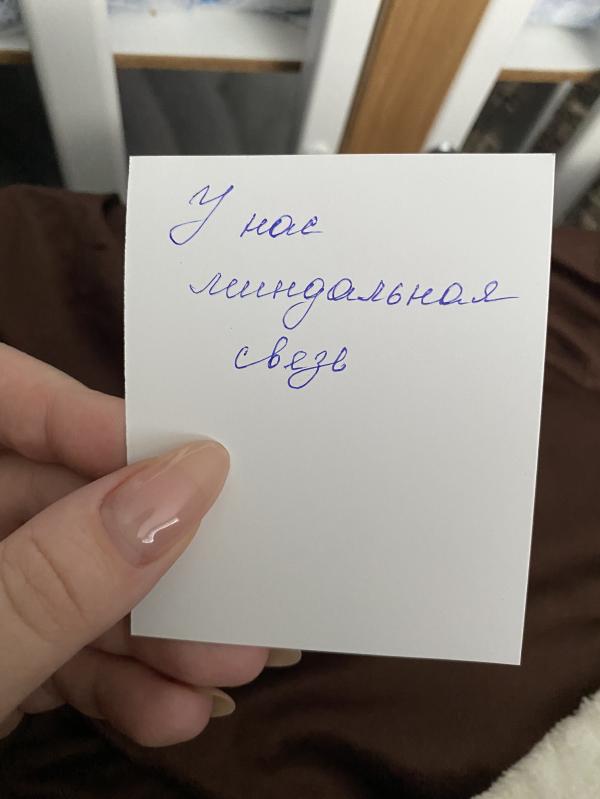 У нас
миндальная
связь